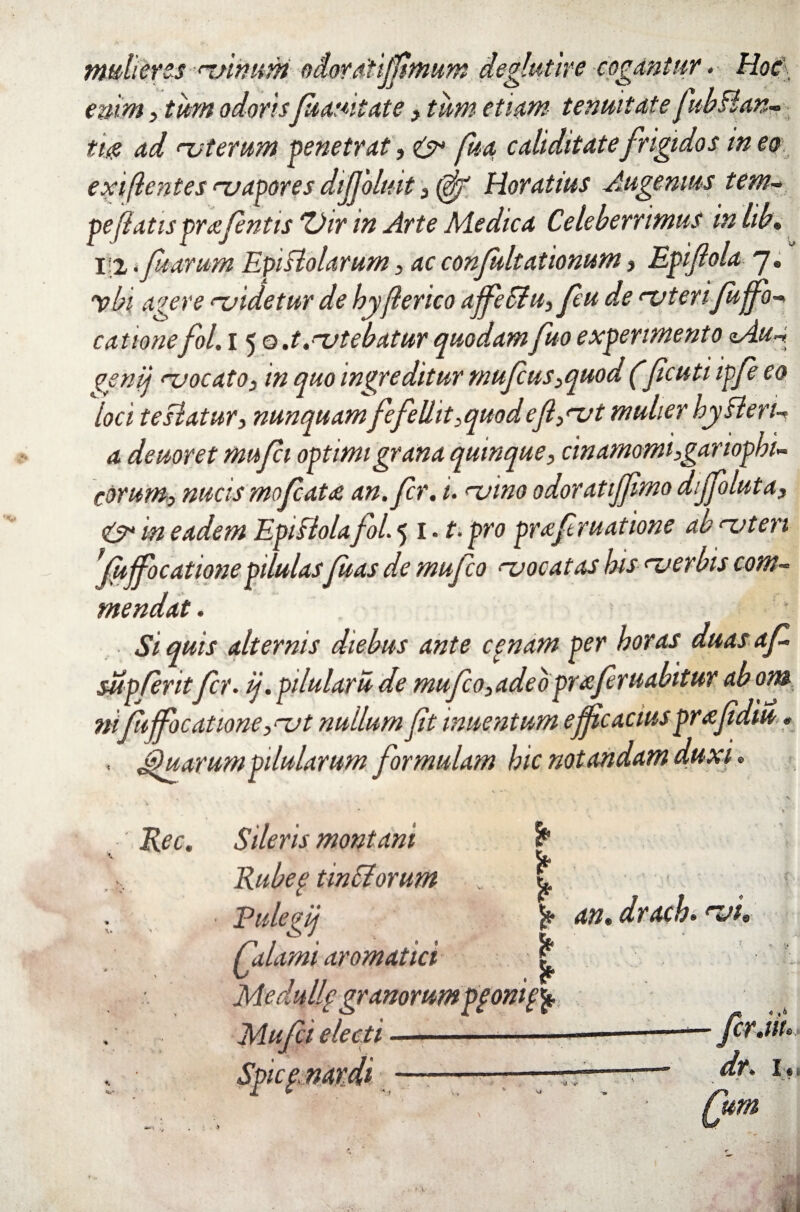 mulieres vinum odoratiſſimum deglutire cogantur. Hoc
enim, tùm odoris ſuauitate, tùm etiam tenuitate ſubſtan-
tiæ ad vterum penetrat, & ſua caliditate frigidos in eo
exiſtentes vapores diſſoluit, & Horatius Augenius tem-
peſtatis præſentis Vir in Arte Medica Celeberrimus in lib.
12. ſuarum Epiſtolarum, ac conſultationum, Epiſtola 7.
vbi agere videtur de hyſterico affectu, ſeu de vteri ſuffo-
catione fol. 150.t. vtebatur quodam ſuo experimento Au-
genij vocato, in quo ingreditur muſcus, quod (ſicuti ipſe eo
loci teſtatur, nunquam fefellit, quod eſt, vt mulier hyſteri-
a deuoret muſci optimi grana quinque, cinamomi, gariophi-
corum, nucis moſcatæ an. ſcr. i. vino odoratiſſimo diſſoluta,
& in eadem Epiſtola fol. 51. t. pro præſeruatione ab vteri
ſuffocatione pilulas ſuas de muſco vocatas his verbis com-
mendat.
Si quis alternis diebus ante cęnam per horas duas aſ-
sũpſerit ſcr. ij. pilularũ de muſco, adeò præſeruabitur ab om
ni ſuffocatione, vt nullum ſit inuentum efficacius præſidiũ.
Quarum pilularum formulam hic notandam duxi.
Rec. Sileris montani
Rubeę tinctorum
Pulegij an. drach. vi.
Calami aromatici
Medullę granorum pęonię
Muſci electi ſcr. iii.
Spicę nardi dr. 1.
Cum